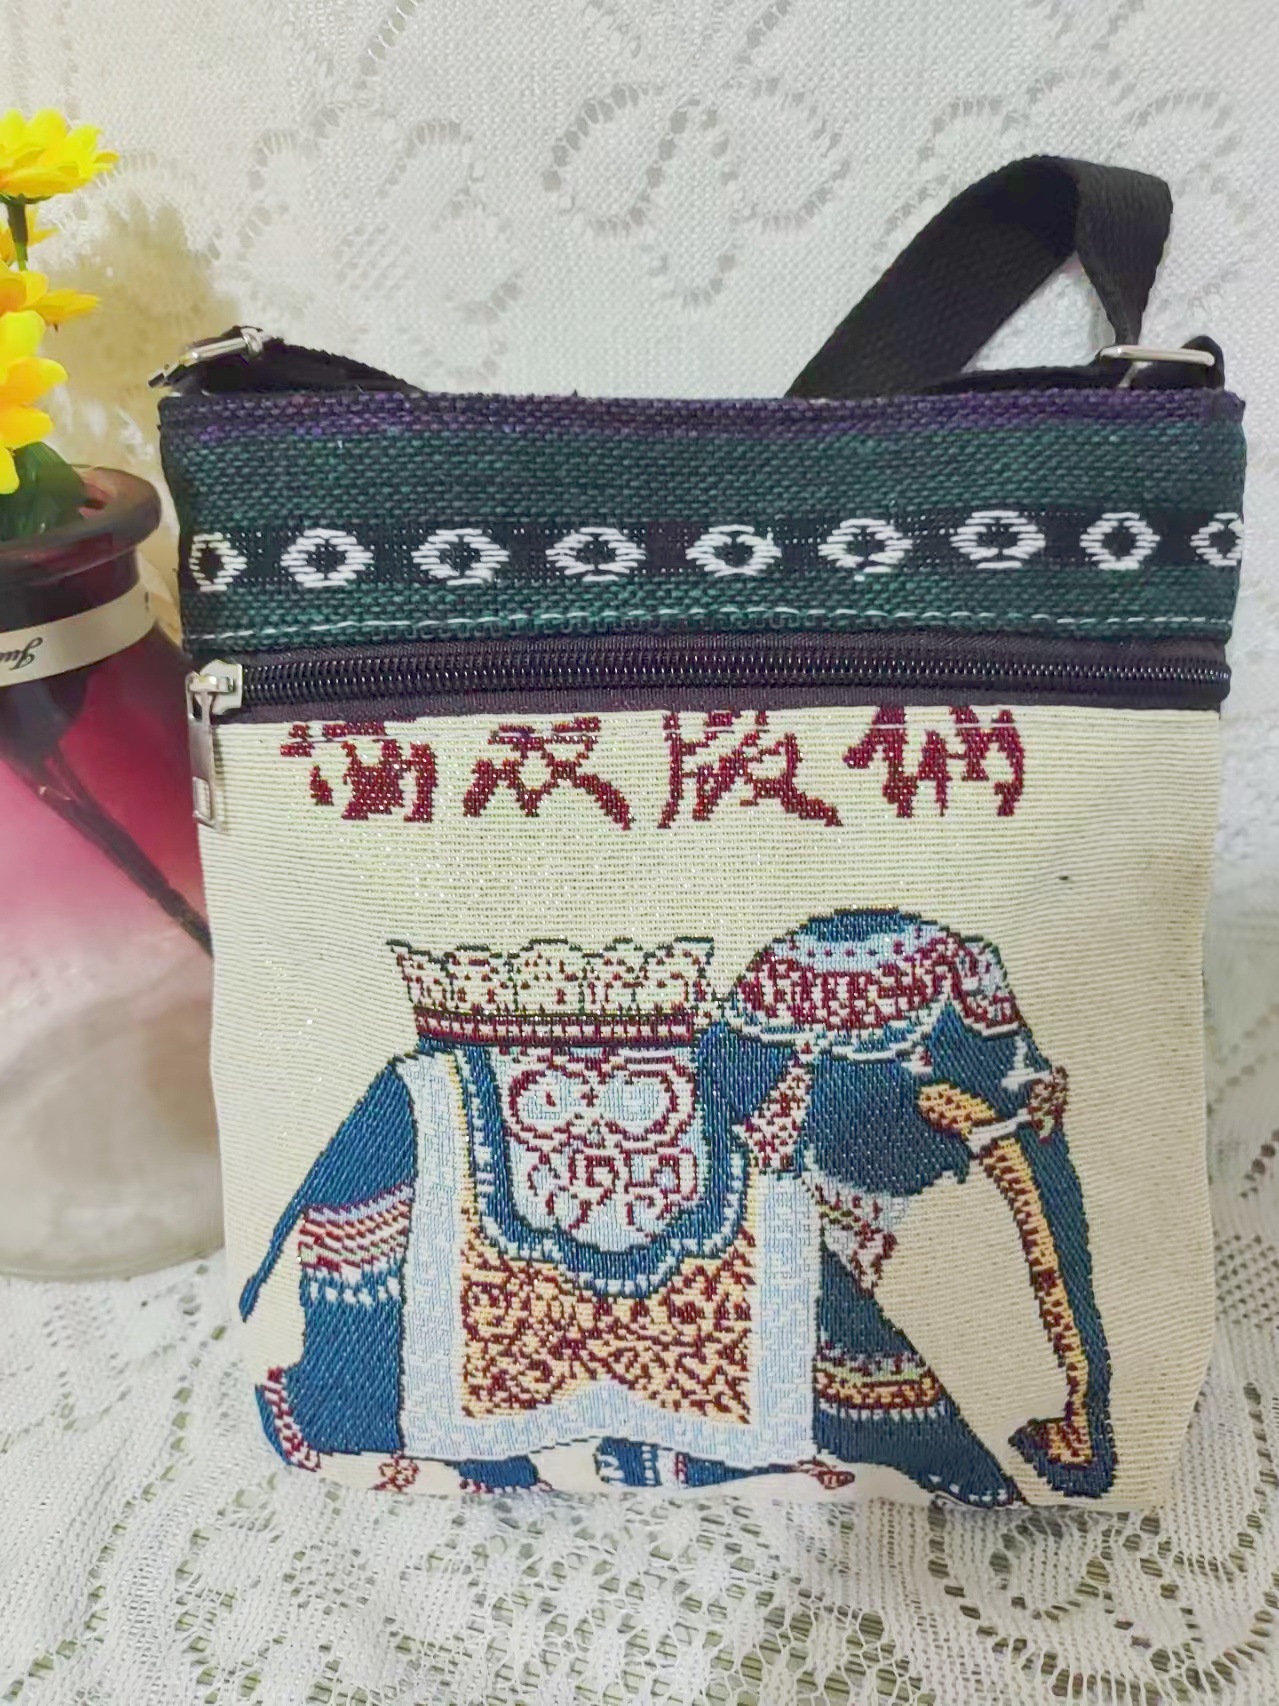 西双版纳